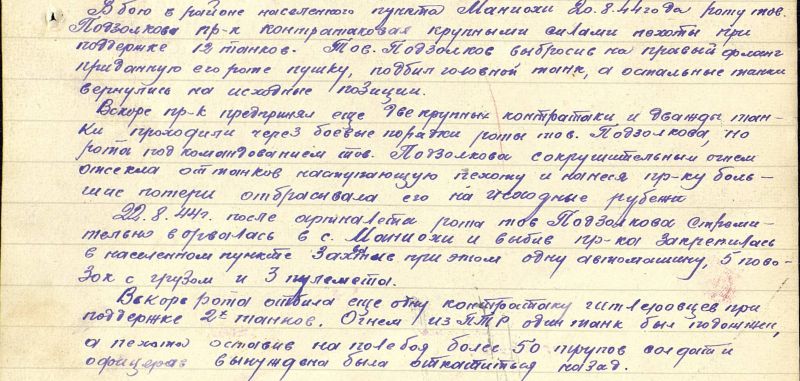 В бою в районе населенного пункта Маниохи 20.8.44 года роту тов.
Подзолкова пр-к контратаковал крупными силами пехоты при
поддержке 12 танков. Тов. Подзолков выбросив на правый фланг
приданную его роте пушку, подбил головной танк, а остальные танки
вернулись на исходные позиции.
Вскоре пр-к предпринял еще две крупных контратаки и дважды тан-
ки проходили через боевые порядки роты тов. Подзолкова, но
рота под командованием тов. Подзолкова сокрушительным огнем
отсекла от танков наступающую пехоту и нанеся пр-ку боль-
шие потери отбрасывала его на исходные рубежи
22.8.44г. после артналета рота тов Подзолкова стреми-
тельно ворвалась в с. Маниохи и выбив пр-ка закрепилась
в населенном пункте захватив при этом одну автомашину, 5 пово-
зок с грузом и 3 пулемета.
Вскоре рота отбила еще одну контратаку гитлеровцев при
поддержке 2х танков. Огнем из ПТР один танк был подожжен,
а пехота оставив на поле боя более 50 трупов солдат и
офицеров вынуждена была откатиться назад.